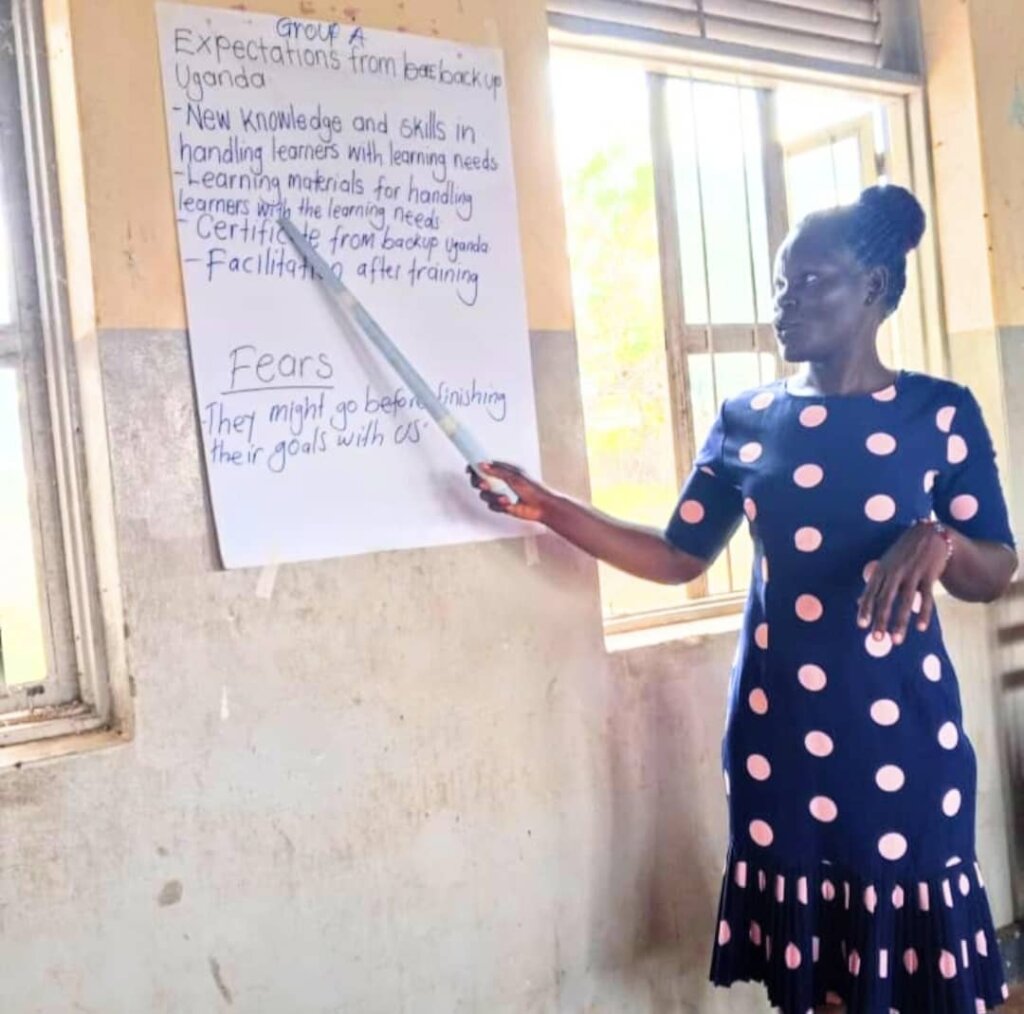 Group A
Expectations from back up
Uganda
-New knowledge and skills in
handling learners with learning needs
-Learning materials for handling
learners with the learning needs
- Certificate from backup Uganda
- Facilitation after training
Fears
-They might go before finishing
their goals with us